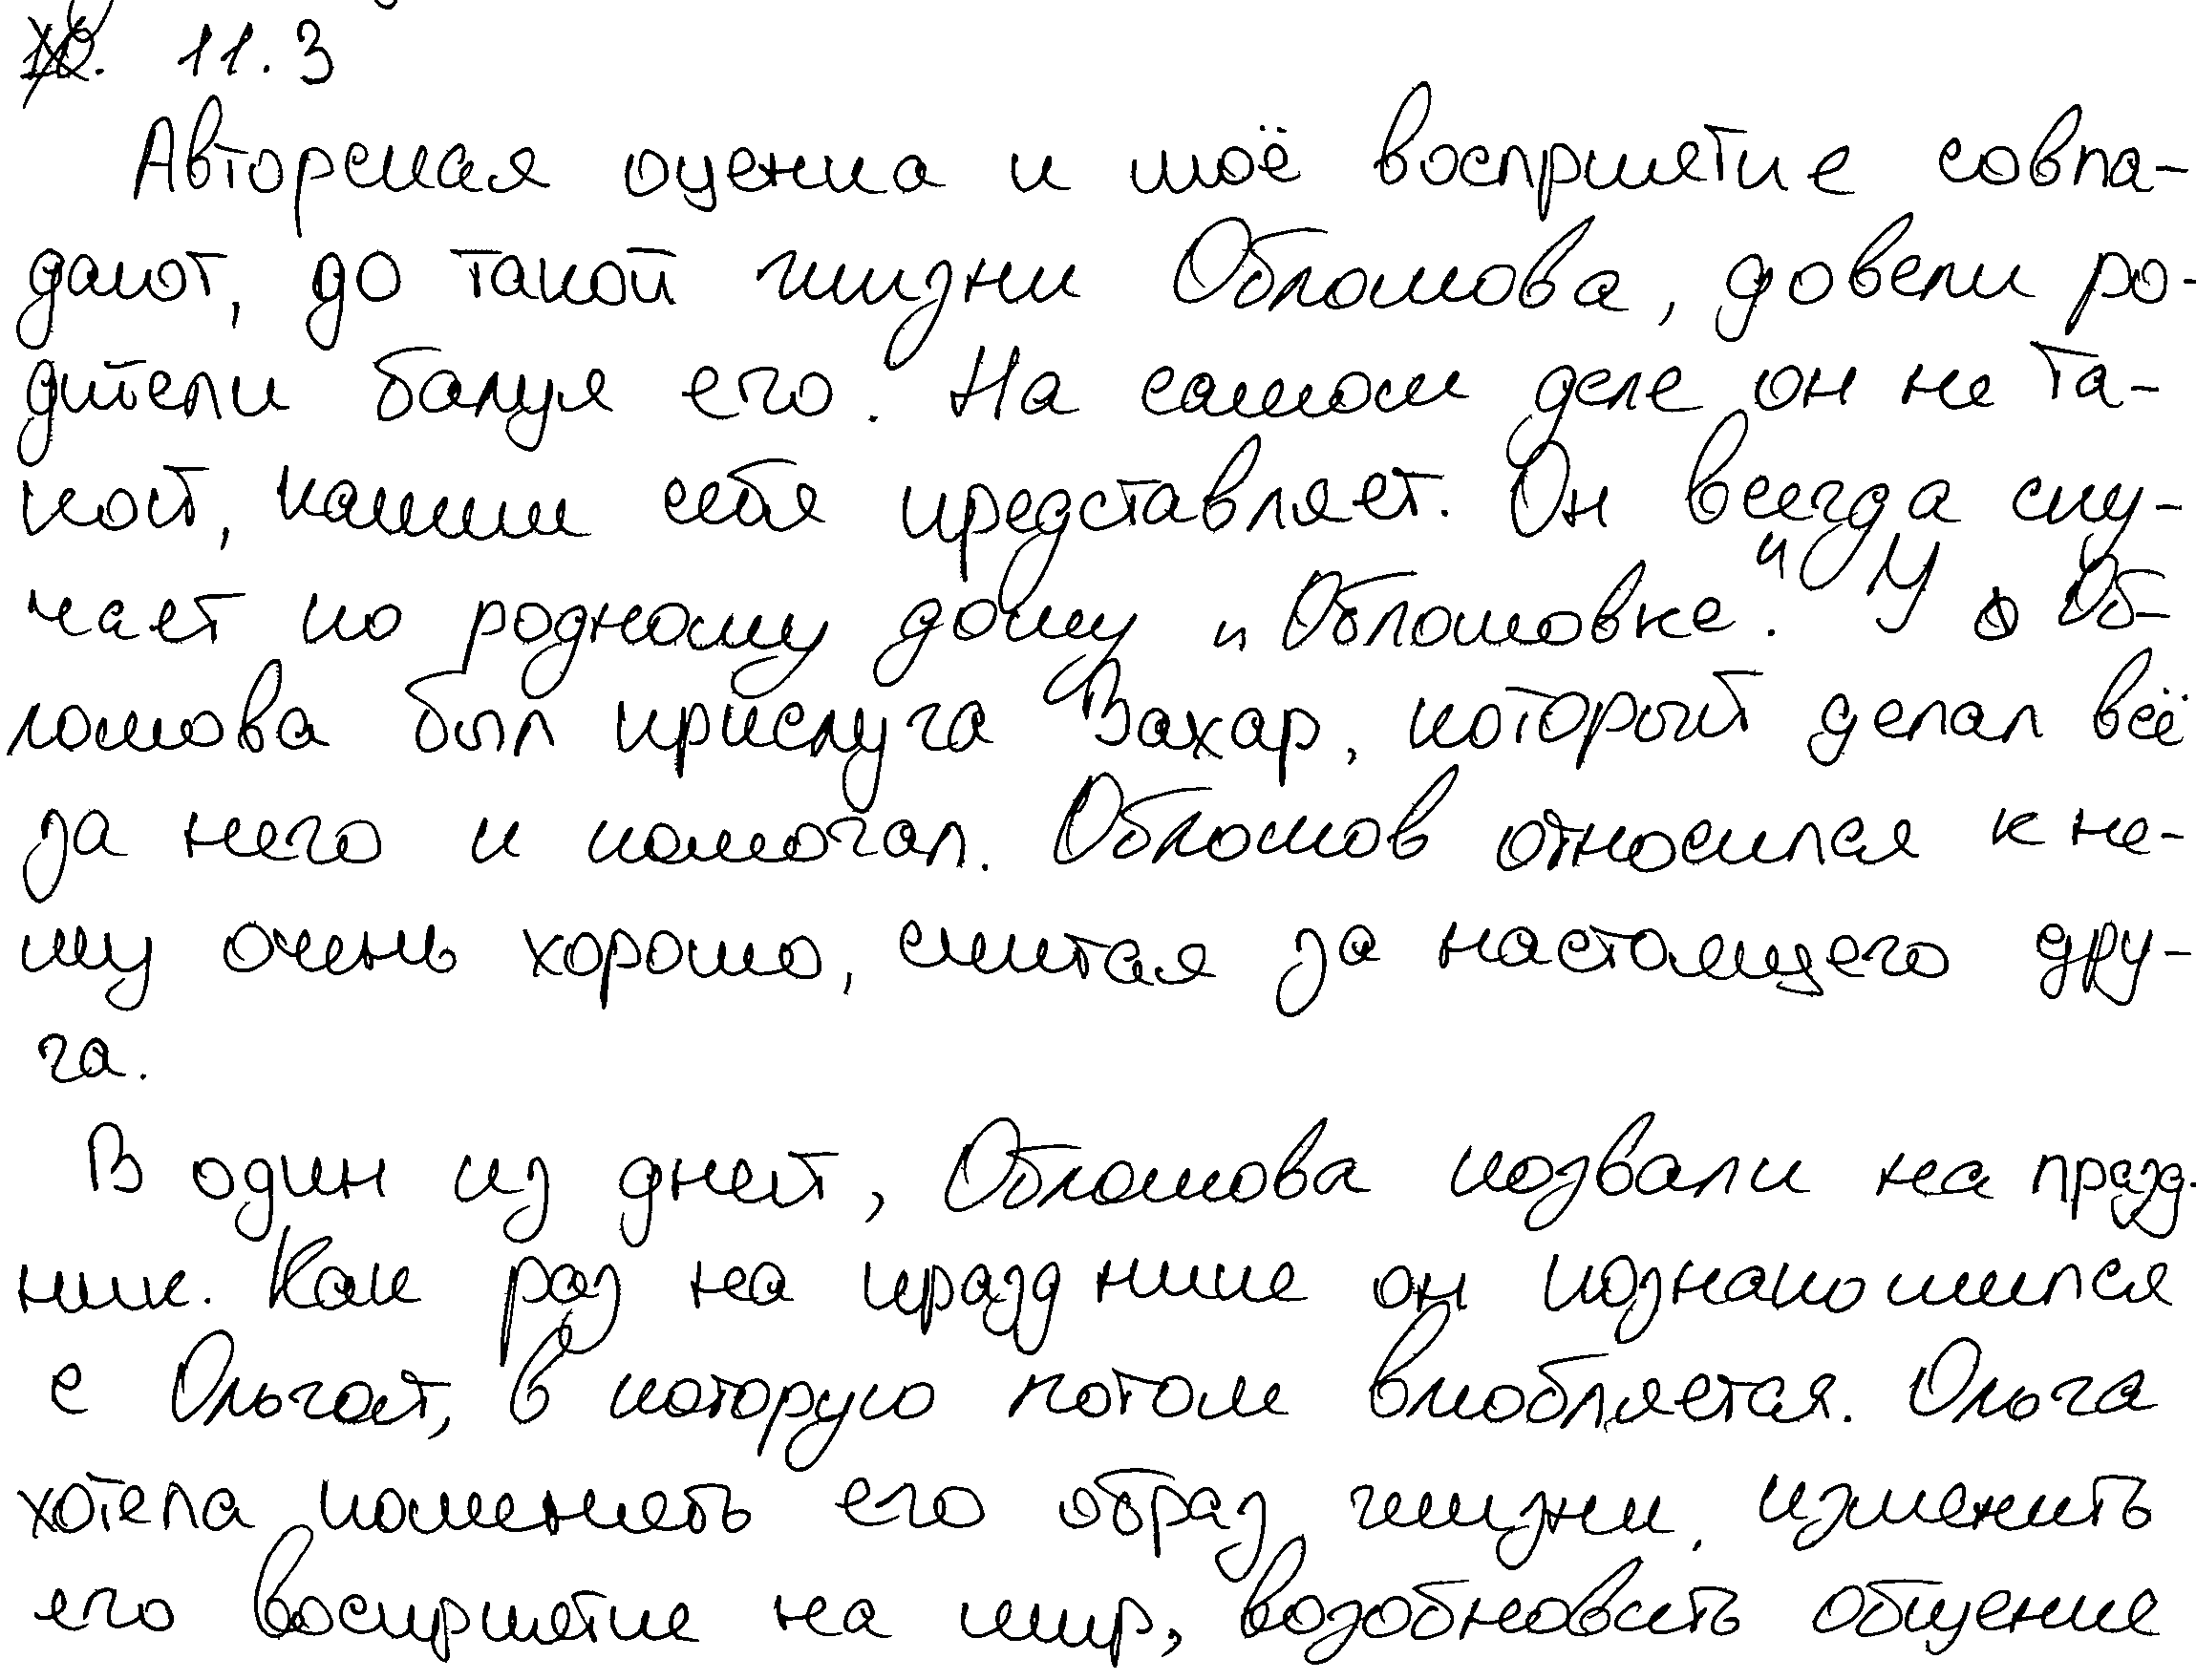 11.3
Авторская оценка и моё восприятие совпа-
дают, до такой жизни Обломова, довели ро-
дители балуя его. На самом деле он не та-
кой, каким себя представляет. Он всегда ску-
чает по родному дому "Обломовке". У Об-
ломова был прислуга Захар, который делал всё
за него и помогал. Обломов относился к не-
му очень хорошо, считая за настоящего дру-
га.
В один из дней, Обломова позвали на празд-
ник. Как раз на празднике он познакомился
с Ольгой, в которую потом влюбляется. Ольга
хотела поменять его образ жизни, изменить
его восприятие на мир, возобновить общение